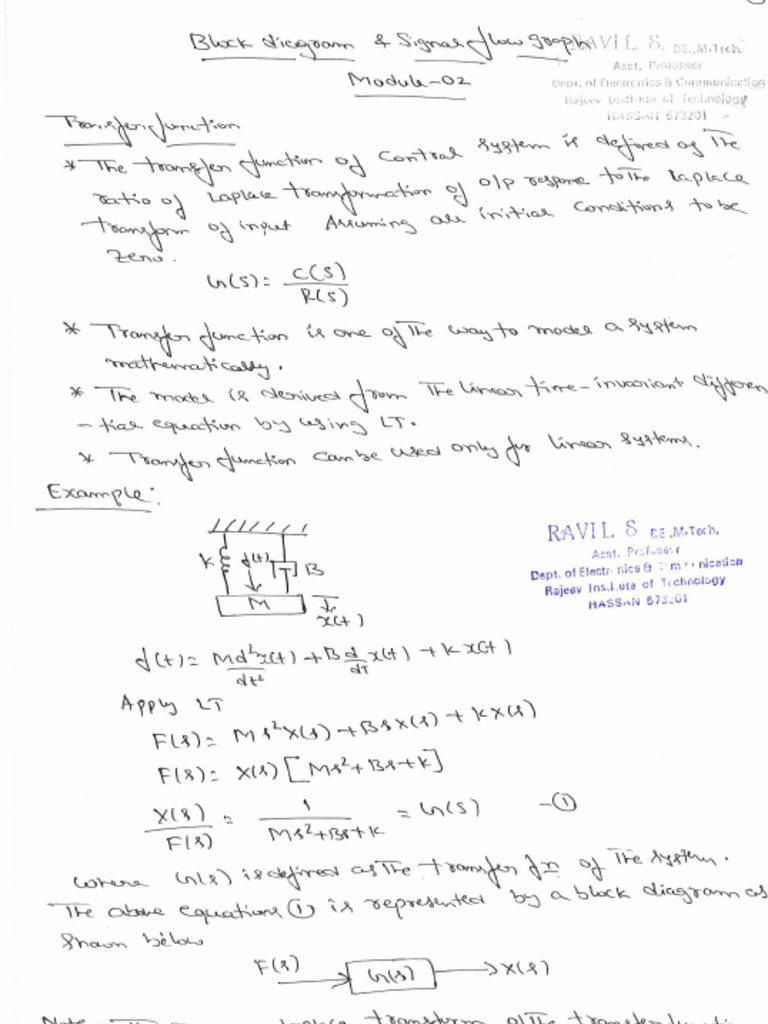 Block diagram & Signal flow graph
RAVI L S. BE.,M.Tech
Asst. Professor
Dept. of Electronics & Communication
Rajeev Institute of Technology
HASSAN 573201
Module-02
Transfer function
* The transfer function of Control system is defined as The
ratio of Laplace transformation of o/p response to the Laplace
transform of input Assuming all initial Conditions to be
Zero.
G(s) = C(s) / R(s)
* Transfer function is one of The way to model a System
mathematically.
* The model is derived from The linear time-invariant differen
-tial equation by using LT.
* Transfer function can be used only for linear systems.
Example:
K f(t) B
M
x(t)
RAVI L S BE.,M.Tech,
Asst. Professor
Dept. of Electronics & Communication
Rajeev Institute of Technology
HASSAN 573201
f(t) = M d²x(t)/dt² + B d/dt x(t) + K x(t)
Apply LT
F(s) = Ms²X(s) + BsX(s) + KX(s)
F(s) = X(s) [Ms² + Bs + K]
X(s)/F(s) = 1/(Ms² + Bs + K) = G(s) -①
where G(s) is defined as The transfer fn of The system.
The above equations ① is represented by a block diagram as
shown below
F(s) G(s) X(s)
Laplace transform of The transfer function